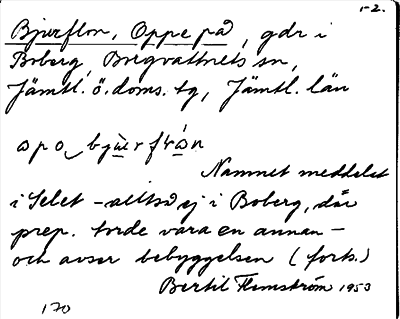 1-2.
Bjurflon, Oppe på, gdr i
Boberg, Borgvattnets sn,
Jämtl. ö. doms. tg, Jämtl. län
Namnet meddelat
i Selet – alltså ej i Boberg, där
prep. torde vara en annan –
och avser bebyggelsen (forts.)
Bertil Flemström 1953
170